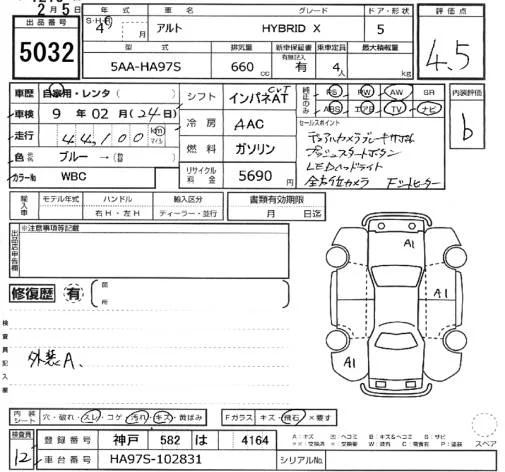 2月5日
出品番号
5032
年式 車名 グレード ドア・形状 評価点
S・H・R 4年 月 アルト HYBRID X 5
4.5
型式 排気量 新車保証書 乗車定員 最大積載量
有無記入
5AA-HA97S 660 cc 有 4人 kg
車歴 自家用・レンタ( )
シフト インパネAT CVT
純正のみ PS PW AW SR
ABS エアB TV ナビ
内装評価
b
車検 9年 02月(24日)
冷房 AAC
セールスポイント
デュアルカメラブレーキサポート
プッシュスタートボタン
LEDヘッドライト
全方位カメラ シートヒーター
走行 44,100 km マイル
燃料 ガソリン
色 ブルー → (替)
カラーNo WBC
リサイクル料金 5690円
輸入車 モデル年式 ハンドル 輸入区分 書類有効期限
右H・左H ディーラー・並行 月 日迄
出品店申告欄 ※注意事項等記載
A1
修復歴 有 箇所
A1
検査員記入欄
外装A、
A1
内装シート 穴・破れ・スレ・コゲ・汚れ・キズ・黄ばみ Fガラス キズ・飛石・×要す
スペア
検査員 12
登録番号 神戸 582 は 4164
車台番号 HA97S-102831 シリアルNo.